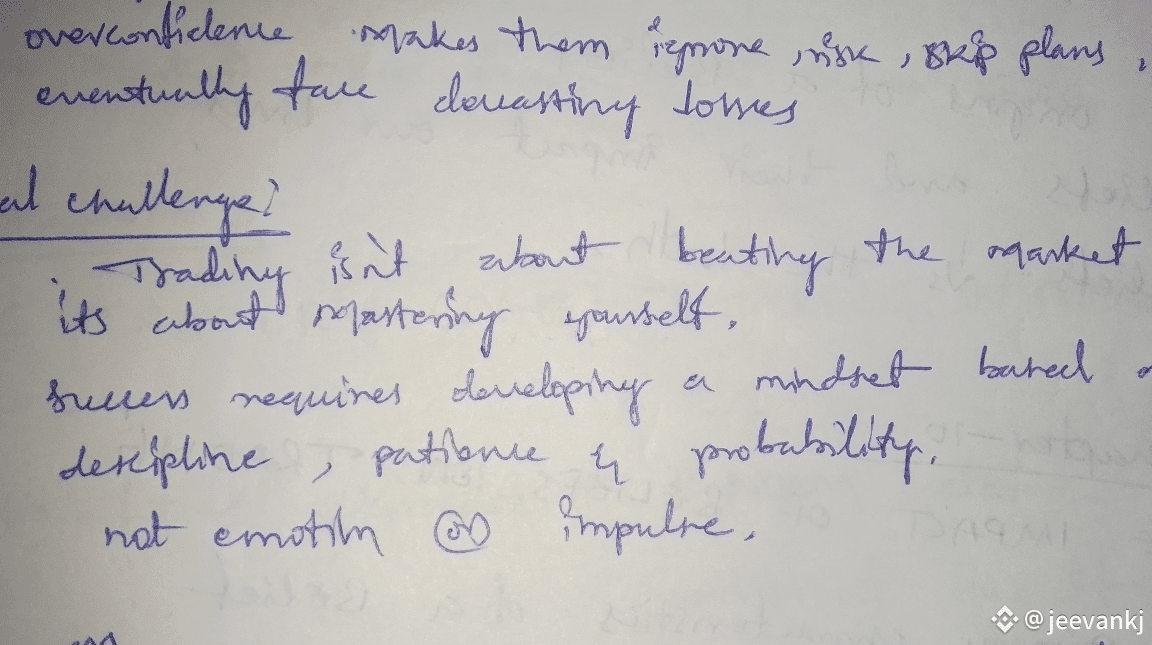 overconfidence makes them ignore risk, skip plans,
eventually face devasting losses
al challenge?
. Trading isn't about beating the market
its about mastering yourself.
success requires developing a mindset based o
descipline, patience & probability.
not emotion or impulse.
@jeevankj